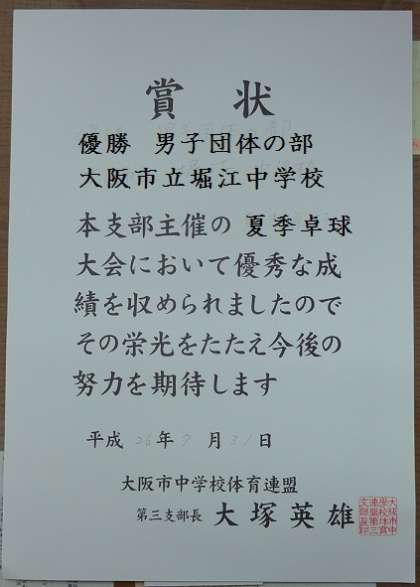 賞状
優勝 男子団体の部
大阪市立堀江中学校
本支部主催の 夏季卓球
大会において優秀な成
績を収められましたので
その栄光をたたえ今後の
努力を期待します
平成 26年 7月 31日
大阪市中学校体育連盟
第三支部長 大塚英雄